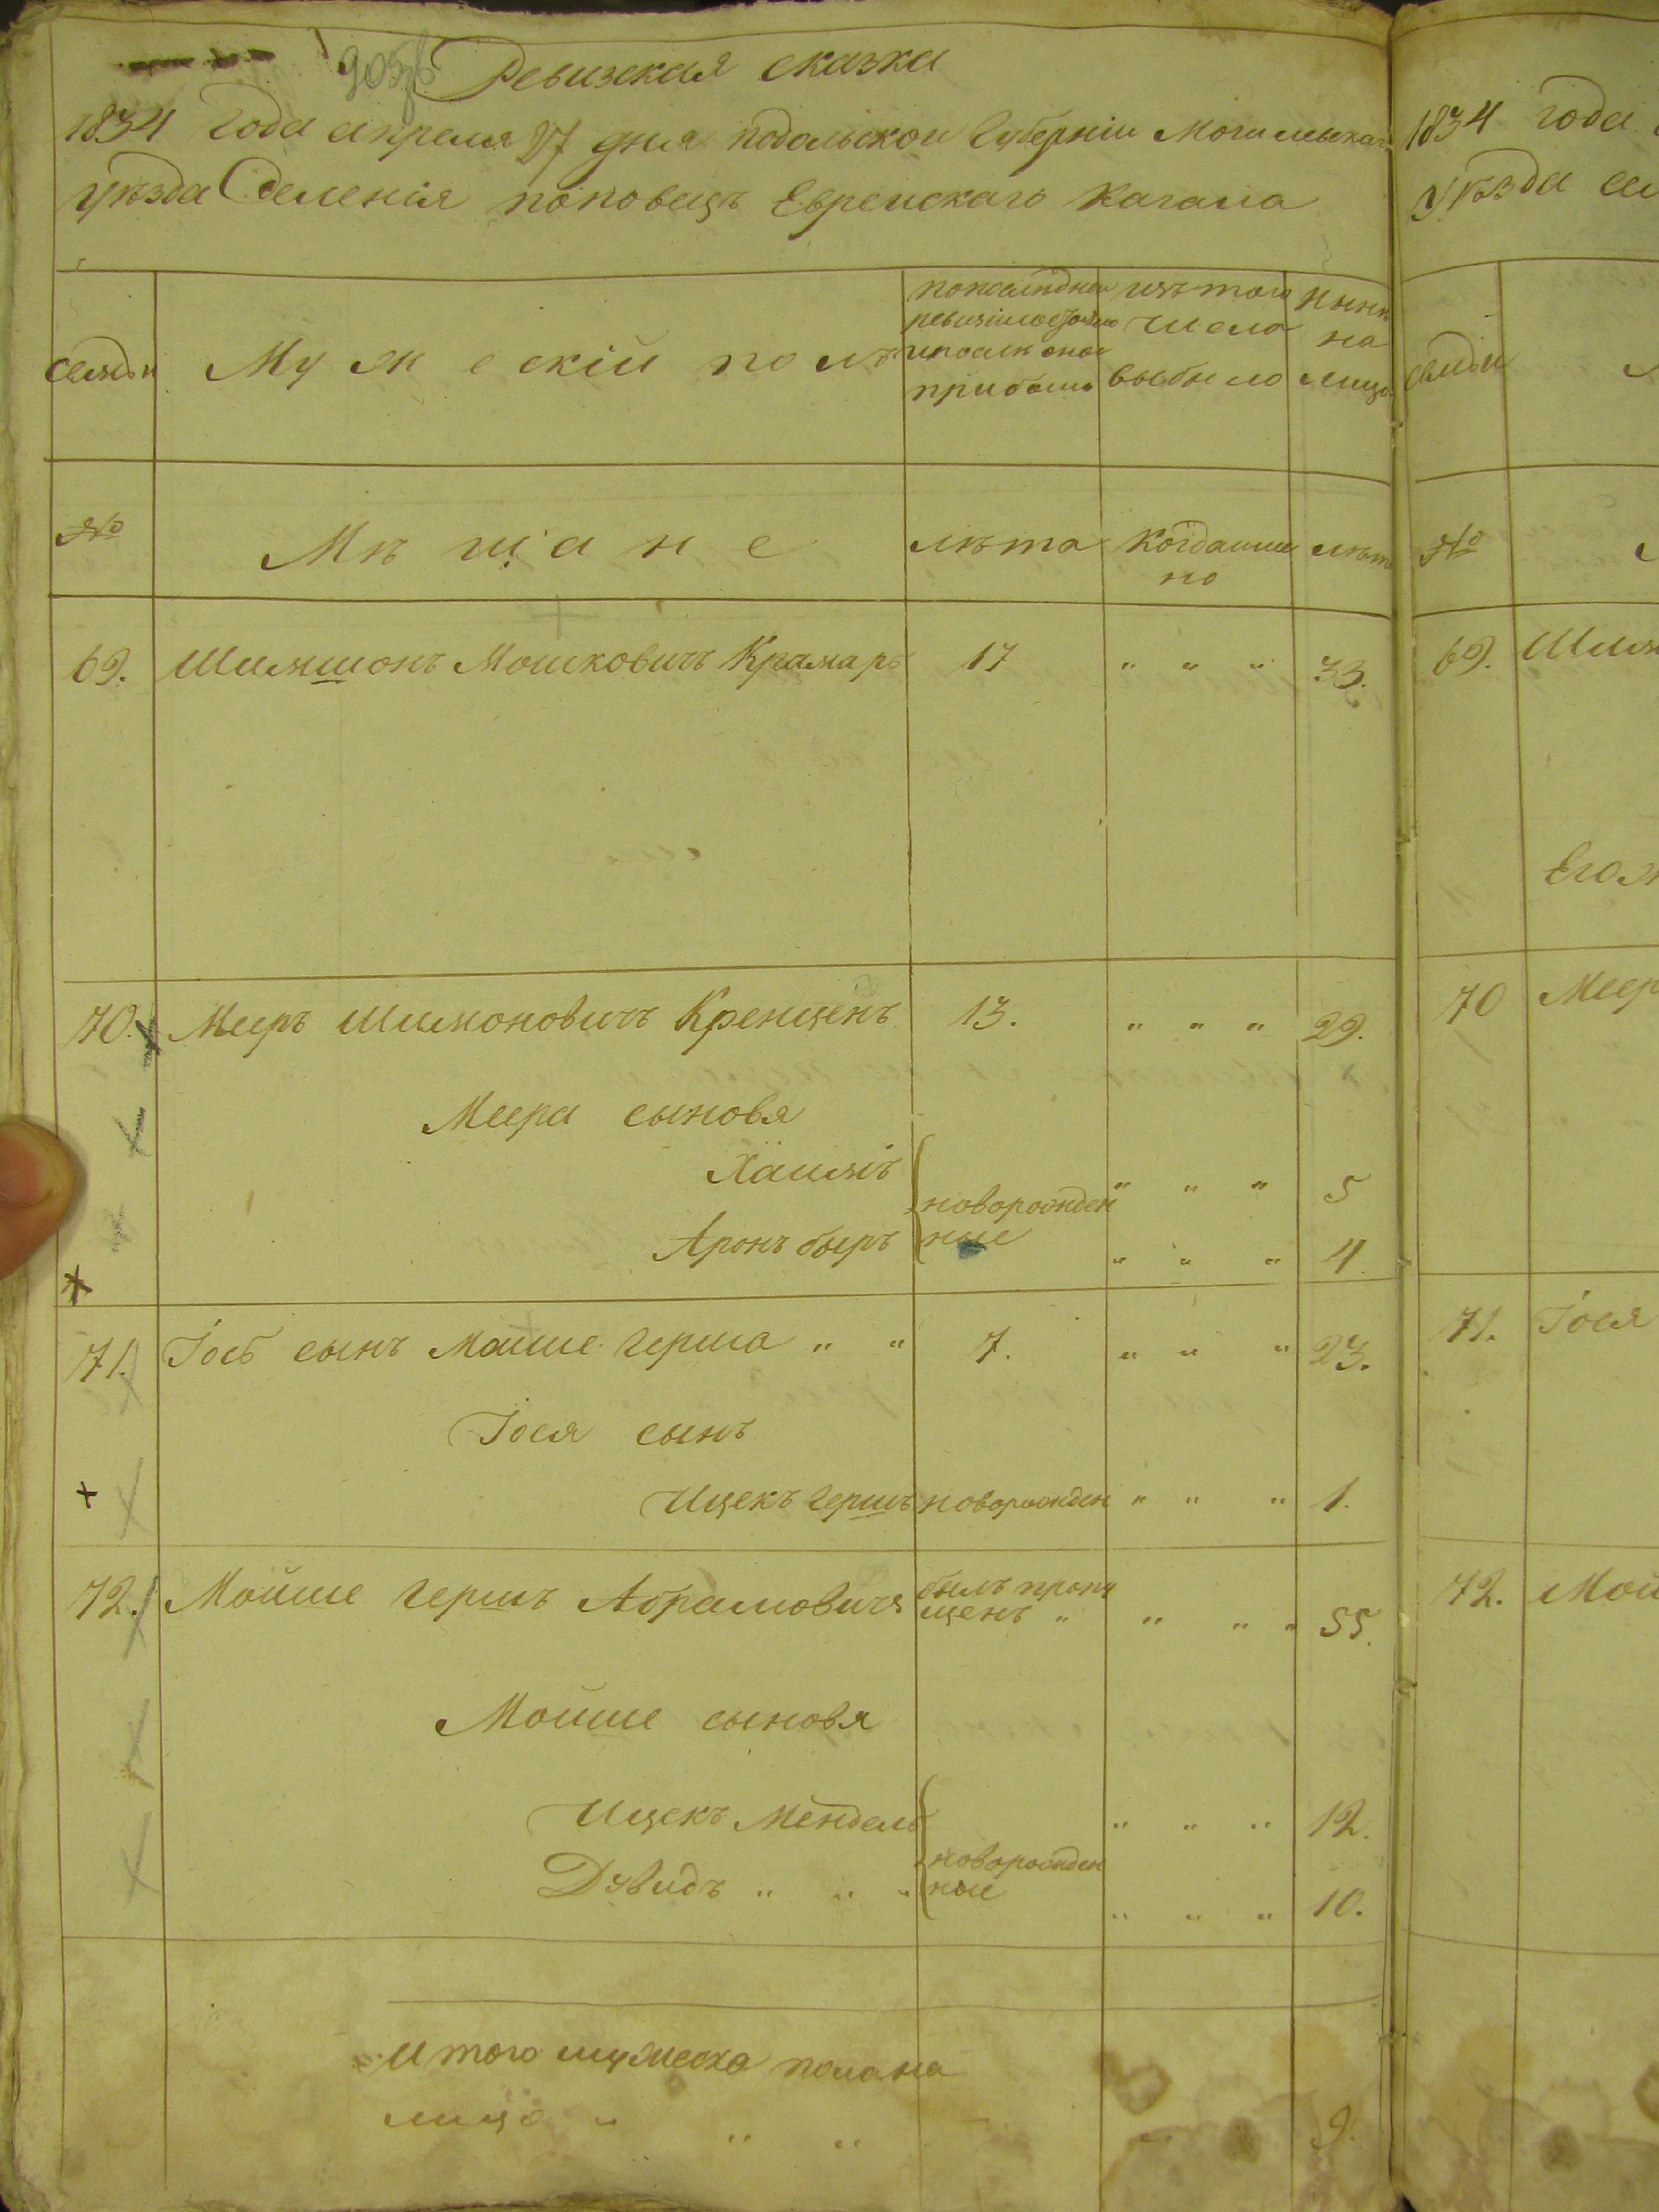 Ревизская сказка
1834 года апреля 27 дня подольской Губерніи Могилевскаго
уѣзда Селенія поповецъ Еврейскаго Кагала
семьи
Мужескій полъ
по последней ревизіи состояло и после оной прибыло
изъ того числа выбыло
нынѣ на лицо
№
Мѣщане
лѣта
Когда именно
лѣта
69. Шимшонъ Мошковичъ Крамаръ 17 " " " 33.
70. Мееръ Шимоновичъ Кренценъ 13. " " " 29.
Меера сыновя
Хаимъ новорожденные " " " 5
Аронъ беръ " " " 4
71. Іосъ сынъ Мошше герша " " 7. " " " 23.
Іося сынъ
Ицекъ гершъ новорожден " " " 1.
72. Мойше гершъ Абрамовичъ былъ пропущенъ " " " " 55.
Мойше сыновя
Ицекъ Мендель новорожденные " " " 12.
Дувидъ " " " " " " 10.
Итого мужеска пола на
лицо " " " " 9.
1834 года
Уѣзда се
семьи
№
69. Шим
Его ж
70 Меер
71. Іося
72. Мой